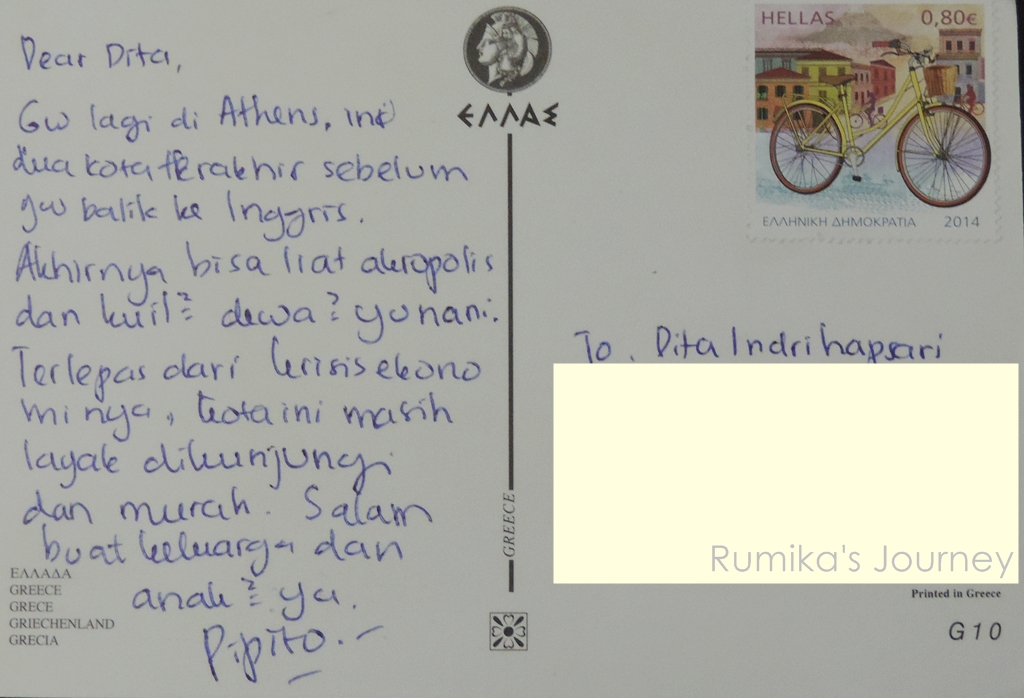 Dear Dita,
Gw lagi di Athens, ini
dua kota terakhir sebelum
gw balik ke Inggris.
Akhirnya bisa liat akropolis
dan kuil² dewa² yunani.
Terlepas dari krisis ekono
mi nya, kota ini masih
layak dikunjungi
dan murah. Salam
buat keluarga dan
anak² ya.
Pipito.-
ΕΛΛΑΔΑ
GREECE
GRECE
GRIECHENLAND
GRECIA
ΕΛΛΑΣ
GREECE
HELLAS 0,80€
ΕΛΛΗΝΙΚΗ ΔΗΜΟΚΡΑΤΙΑ 2014
To. Dita Indrihapsari
Rumika's Journey
Printed in Greece
G10